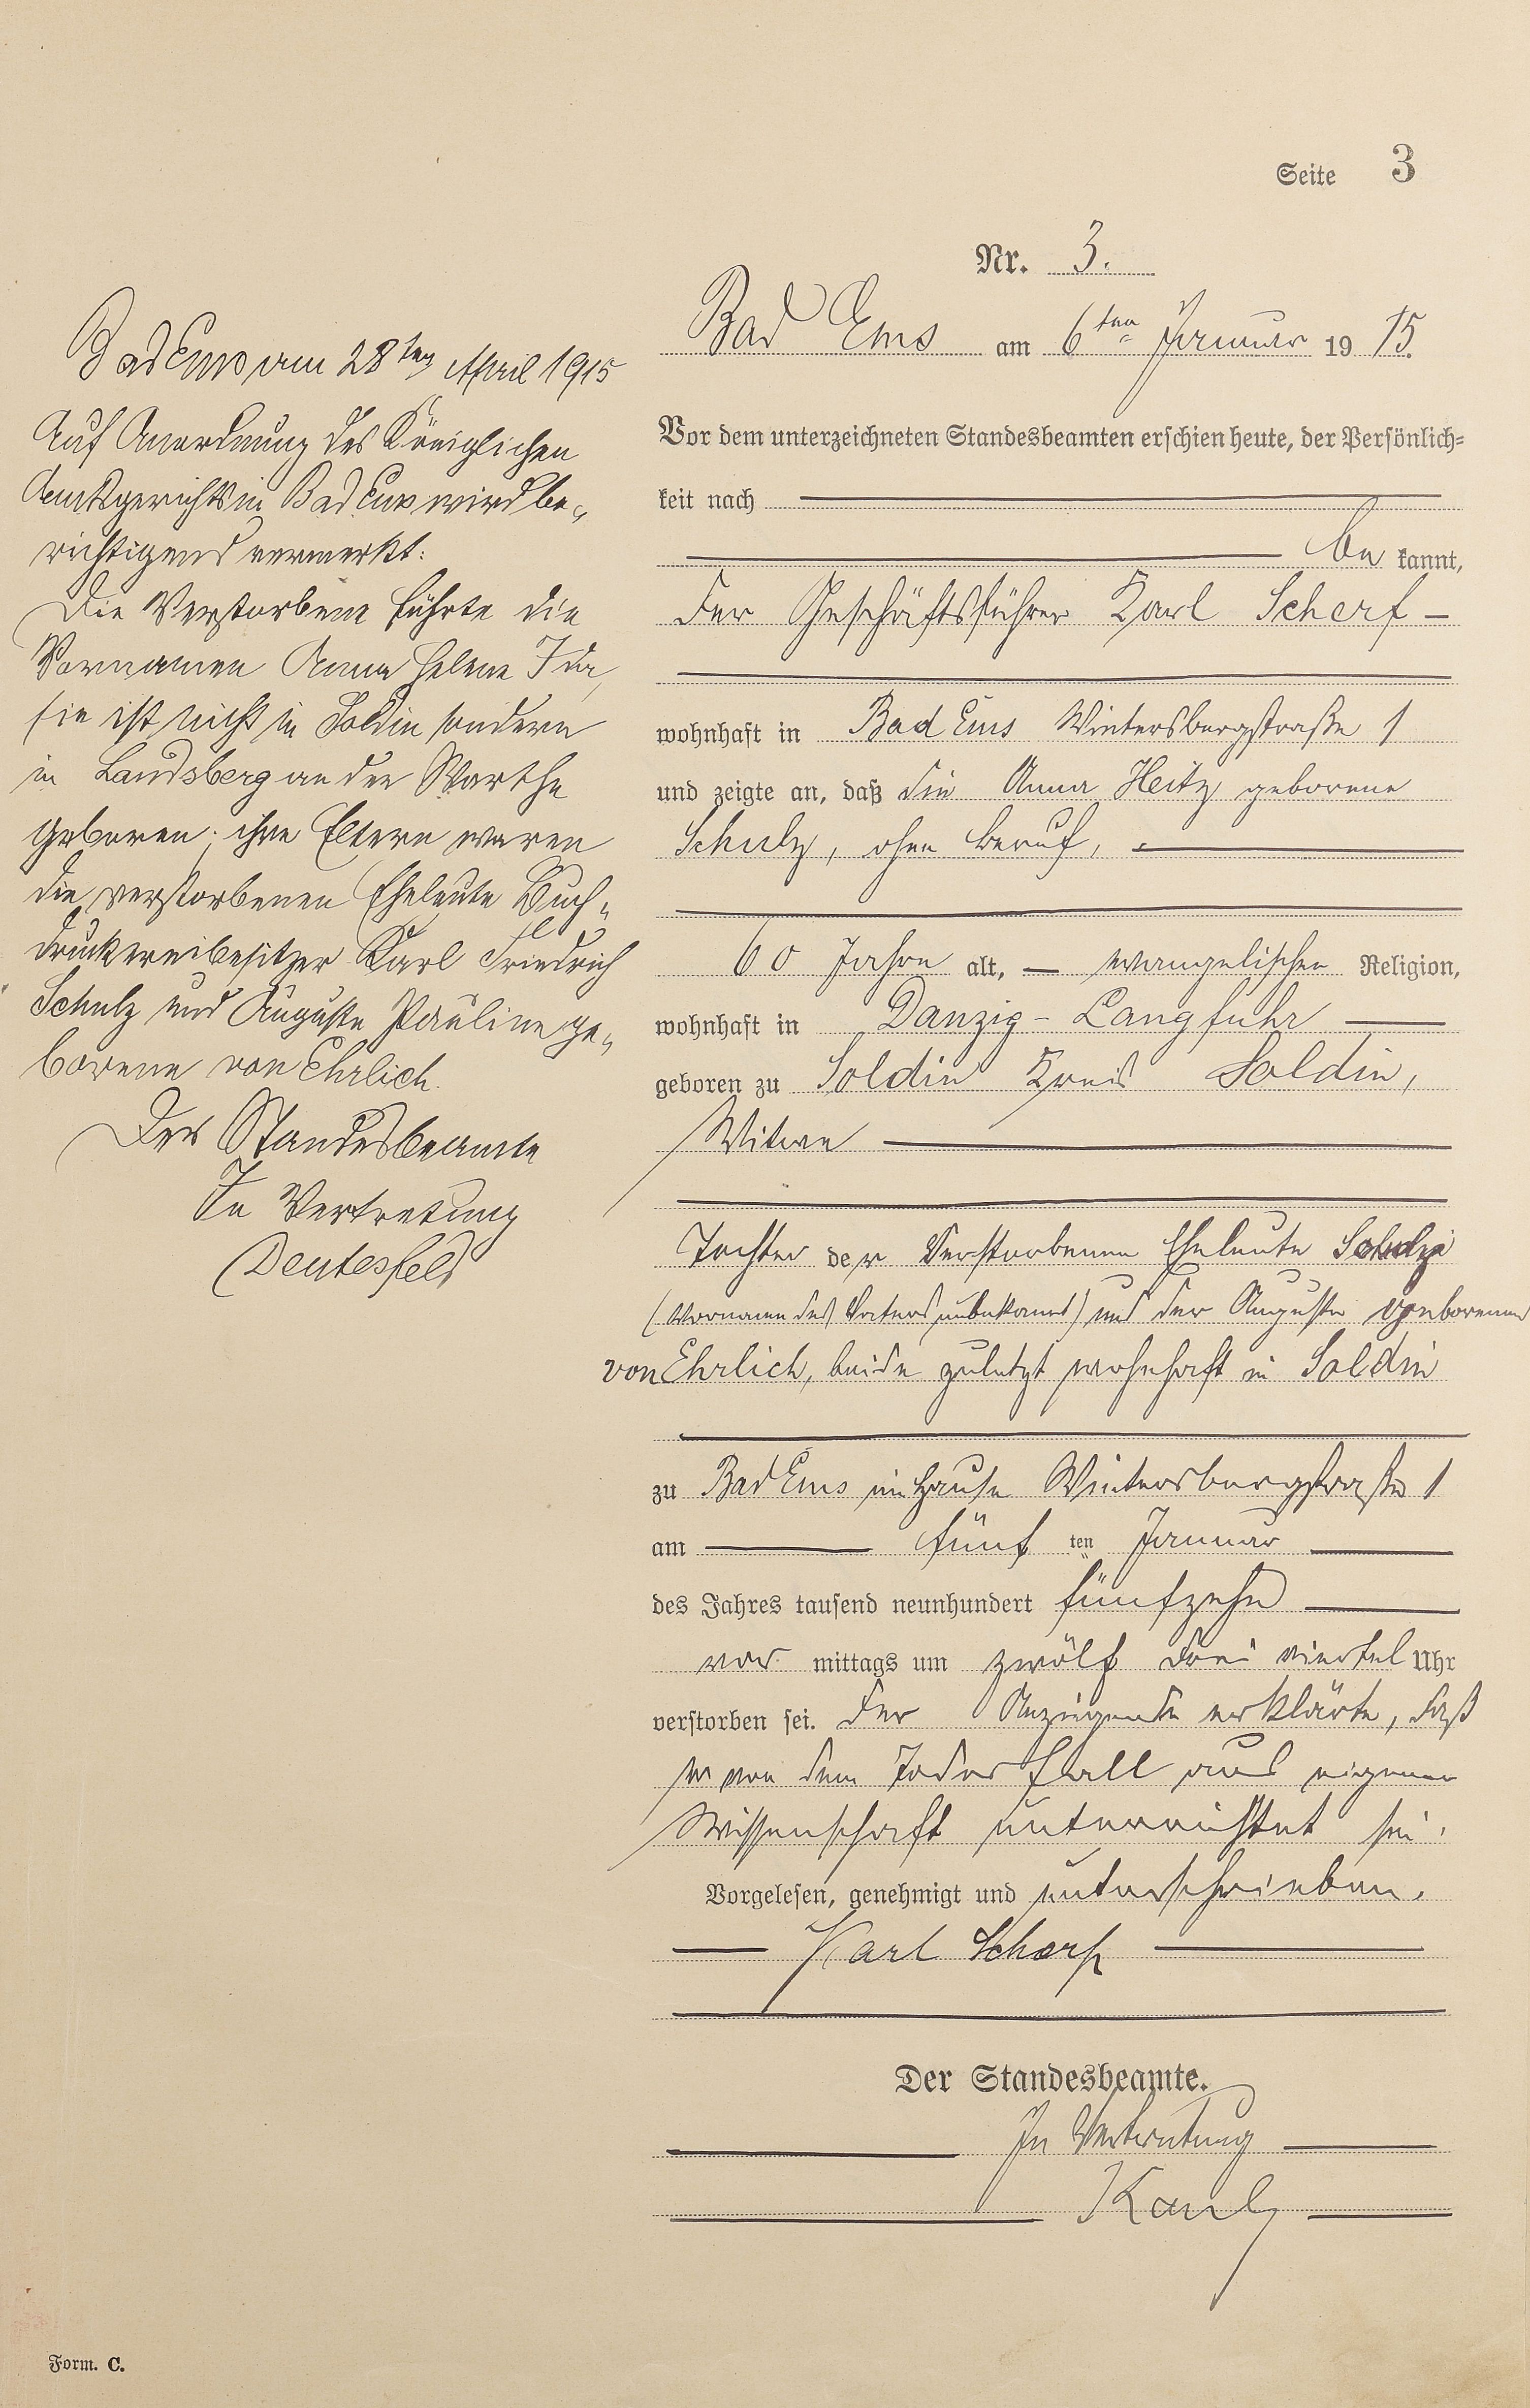 Seite 3
Nr. 3.
Bad Ems am 6ten Januar 19 15.
Vor dem unterzeichneten Standesbeamten erschien heute, der Persönlich-
keit nach
be kannt,
der Geschäftsführer Karl Scherf
wohnhaft in Bad Ems Wintersbergstraße 1
und zeigte an, daß die Anna Heitz geborene
Schulz, ohne Beruf,
60 Jahre alt, evangelischer Religion,
wohnhaft in Danzig-Langfuhr
geboren zu Soldin Kreis Soldin,
Witwe
Tochter der Verstorbenen Eheleute Schulz
(Vorname des Vaters unbekannt) und der Auguste geborenen
von Ehrlich, beide zuletzt wohnhaft in Soldin
zu Bad Ems im Hause Wintersbergstraße 1
am fünf ten Januar
des Jahres tausend neunhundert fünfzehn
vor mittags um zwölf drei viertel Uhr
verstorben sei. Der Anzeigende erklärte, daß
er von dem Todesfall aus eigener
Wissenschaft unterrichtet sei.
Vorgelesen, genehmigt und unterschrieben.
Karl Scherf
Der Standesbeamte.
In Vertretung
Kaul
Bad Ems am 28ten April 1915
Auf Anordnung des Königlichen
Amtsgerichts in Bad Ems wird be-
richtigend vermerkt:
Die Verstorbene führte die
Vornamen Anna Helene Ida,
sie ist nicht in Soldin sondern
in Landsberg an der Warthe
geboren; ihre Eltern waren
die verstorbenen Eheleute Buch-
druckereibesitzer Karl Friedrich
Schulz und Auguste Pauline ge-
borene von Ehrlich.
Der Standesbeamte
In Vertretung
Deutesfeld
Form. C.